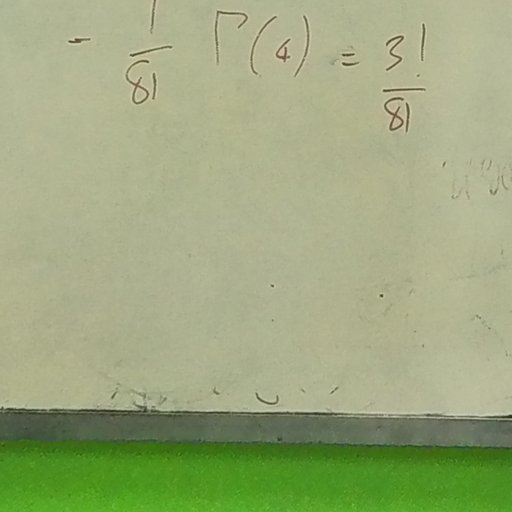 - 1/81 Γ(4) = 3!/81